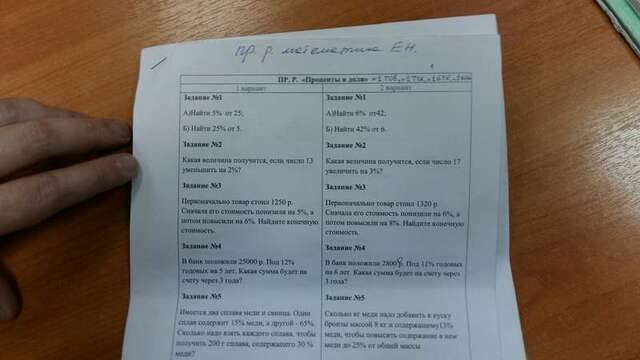 пр. р. математика ЕН.
ПР. Р. «Проценты и доли»
1 вариант
2 вариант
Задание №1
А)Найти 5% от 25;
Б) Найти 25% от 5.
Задание №2
Какая величина получится, если число 13
уменьшить на 2%?
Задание №3
Первоначально товар стоил 1250 р.
Сначала его стоимость понизили на 5%, а
потом повысили на 6%. Найдите конечную
стоимость.
Задание №4
В банк положили 25000 р. Под 12%
годовых на 5 лет. Какая сумма будет на
счету через 3 года?
Задание №5
Имеется два сплава меди и свинца. Один
сплав содержит 15% меди, а другой - 65%.
Сколько надо взять каждого сплава, чтобы
получить 200 г сплава, содержащего 30 %
меди?
Задание №1
А)Найти 6% от42;
Б) Найти 42% от 6.
Задание №2
Какая величина получится, если число 17
увеличить на 3%?
Задание №3
Первоначально товар стоил 1320 р.
Сначала его стоимость понизили на 6%, а
потом повысили на 8%. Найдите конечную
стоимость.
Задание №4
В банк положили 28000 р. Под 11% годовых
на 6 лет. Какая сумма будет на счету через
3 года?
Задание №5
Сколько кг меди надо добавить к куску
бронзы массой 8 кг и содержащему13%
меди, чтобы повысить содержание в нем
меди до 25% от общей массы